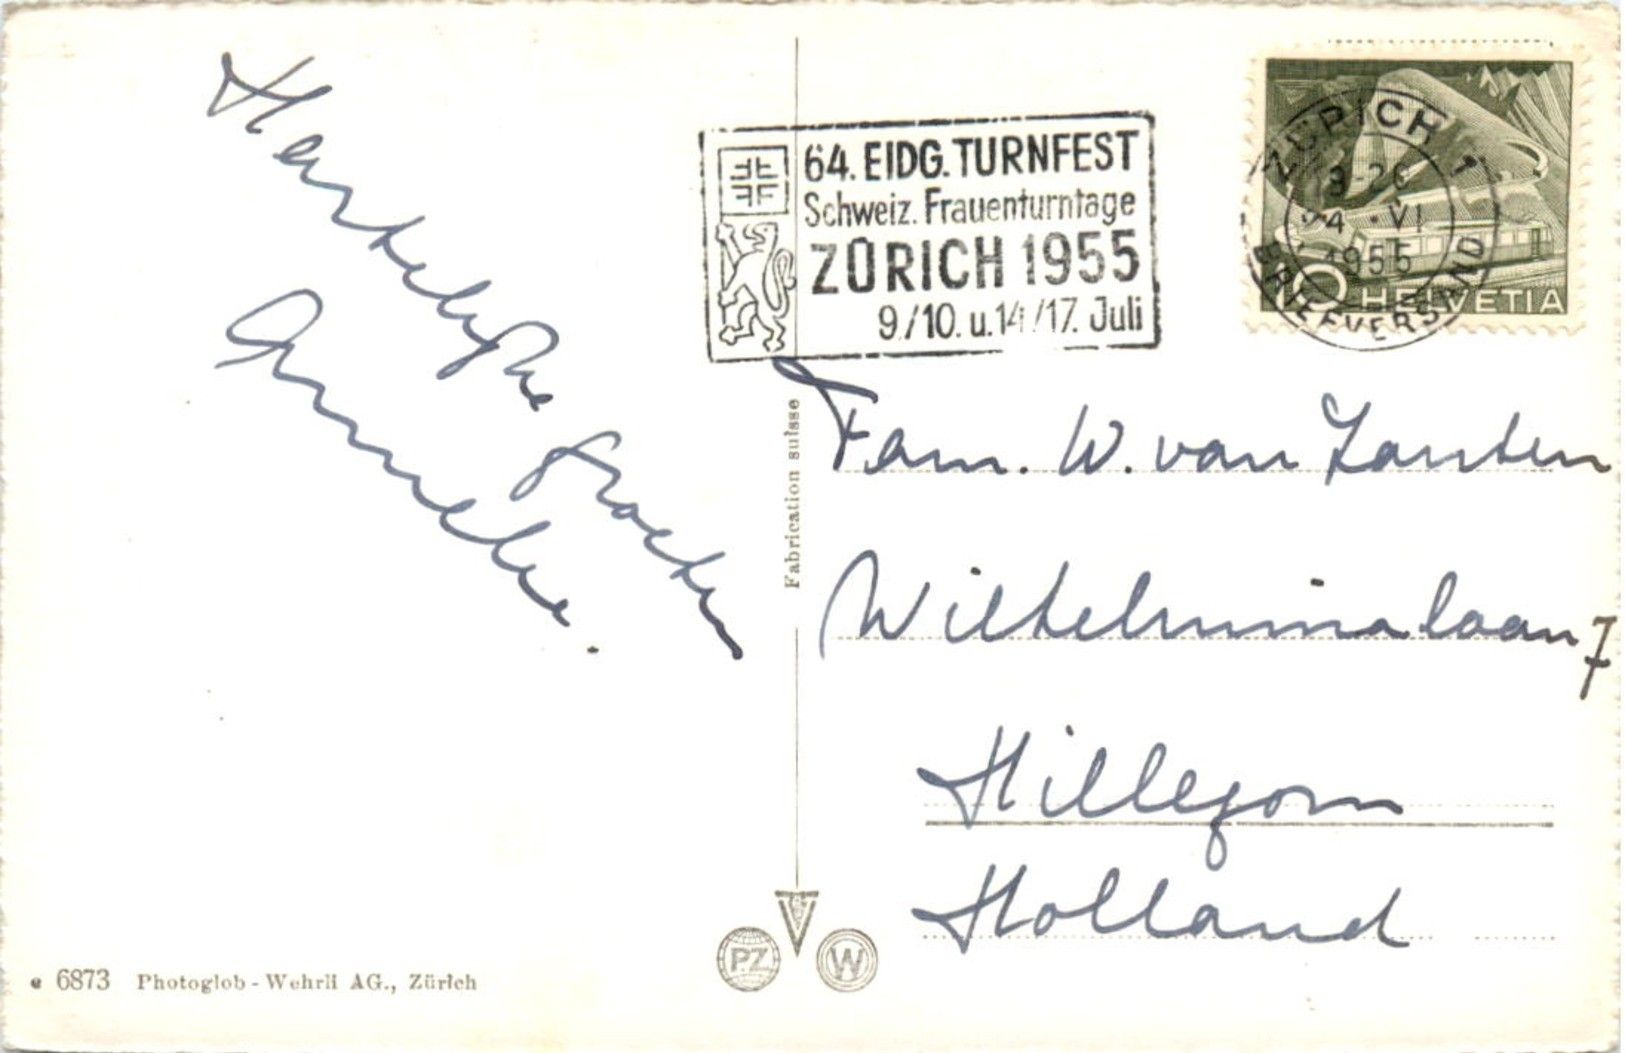 Hartelijke groeten
Anneke.
64. EIDG. TURNFEST
Schweiz. Frauenturntage
ZÜRICH 1955
9/10. u. 14/17. Juli
ZÜRICH 1
24 VI
1955
BRIEFVERSAND
10 HELVETIA
Fam. W. van Zanten
Wilhelminalaan 7
Hillegom
Holland
Fabrication suisse
PZ
W
e 6873 Photoglob-Wehrli AG., Zürich